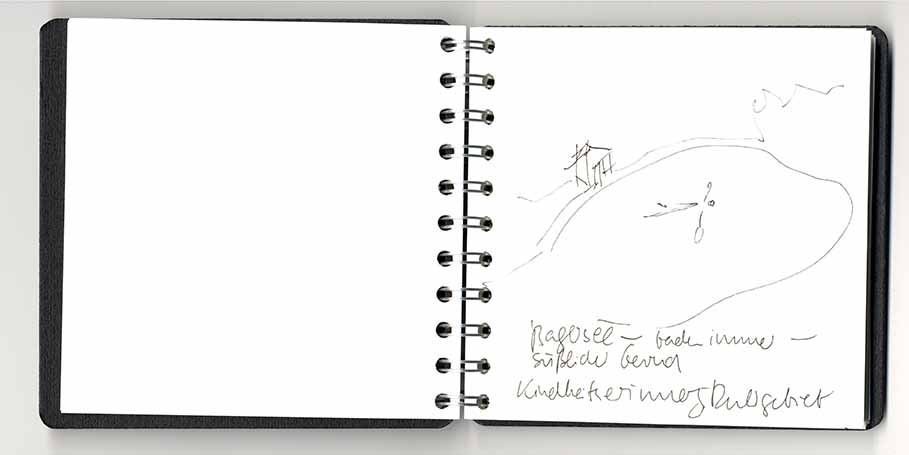 Baggersee – baden immer –
süßlicher Geruch
Kindheitserinnerg Ruhrgebiet